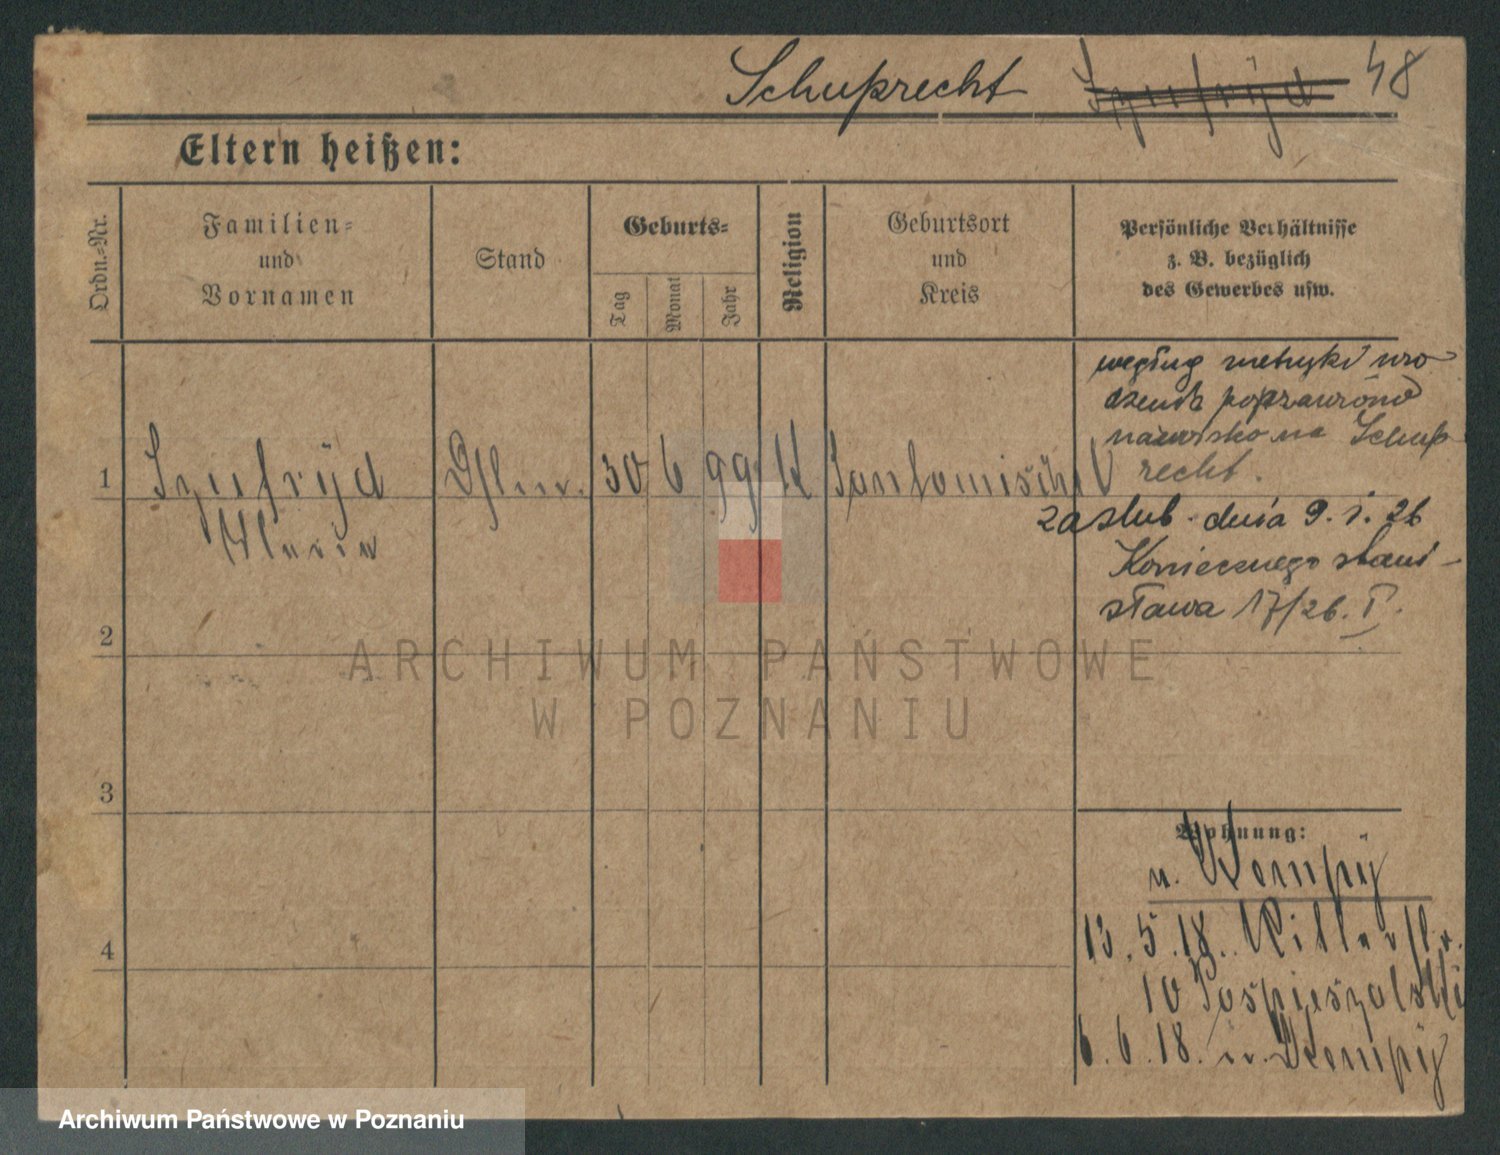 Schuprecht Szufryd 48
Eltern heißen:
Ordn.-Nr.
Familien-
und
Vornamen
Stand
Geburts-
Tag
Monat
Jahr
Religion
Geburtsort
und
Kreis
Persönliche Verhältnisse
z. B. bezüglich
des Gewerbes usw.
1
Szufryd
Maria
30
6
99
K
Santomischel
według metryki uro
dzenia poprawiono
nazwisko na Schup
recht.
zaślub. dnia 9. 1. 26
Koniecznego Stani-
sława 17/26. I.
2
3
4
Wohnung:
n.
13. 5. 18. Ritterstr.
10 Pospieszalski
6. 6. 18. n.
ARCHIWUM PAŃSTWOWE
W POZNANIU
Archiwum Państwowe w Poznaniu